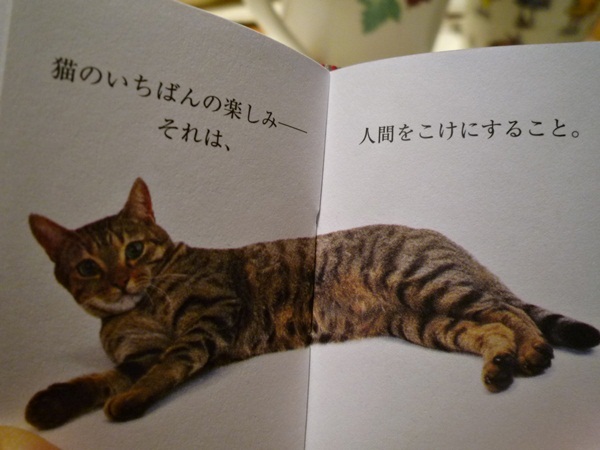 猫のいちばんの楽しみ──
それは、
人間をこけにすること。